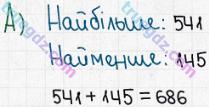 А) Найбільше: 541
Найменше: 145
541 + 145 = 686